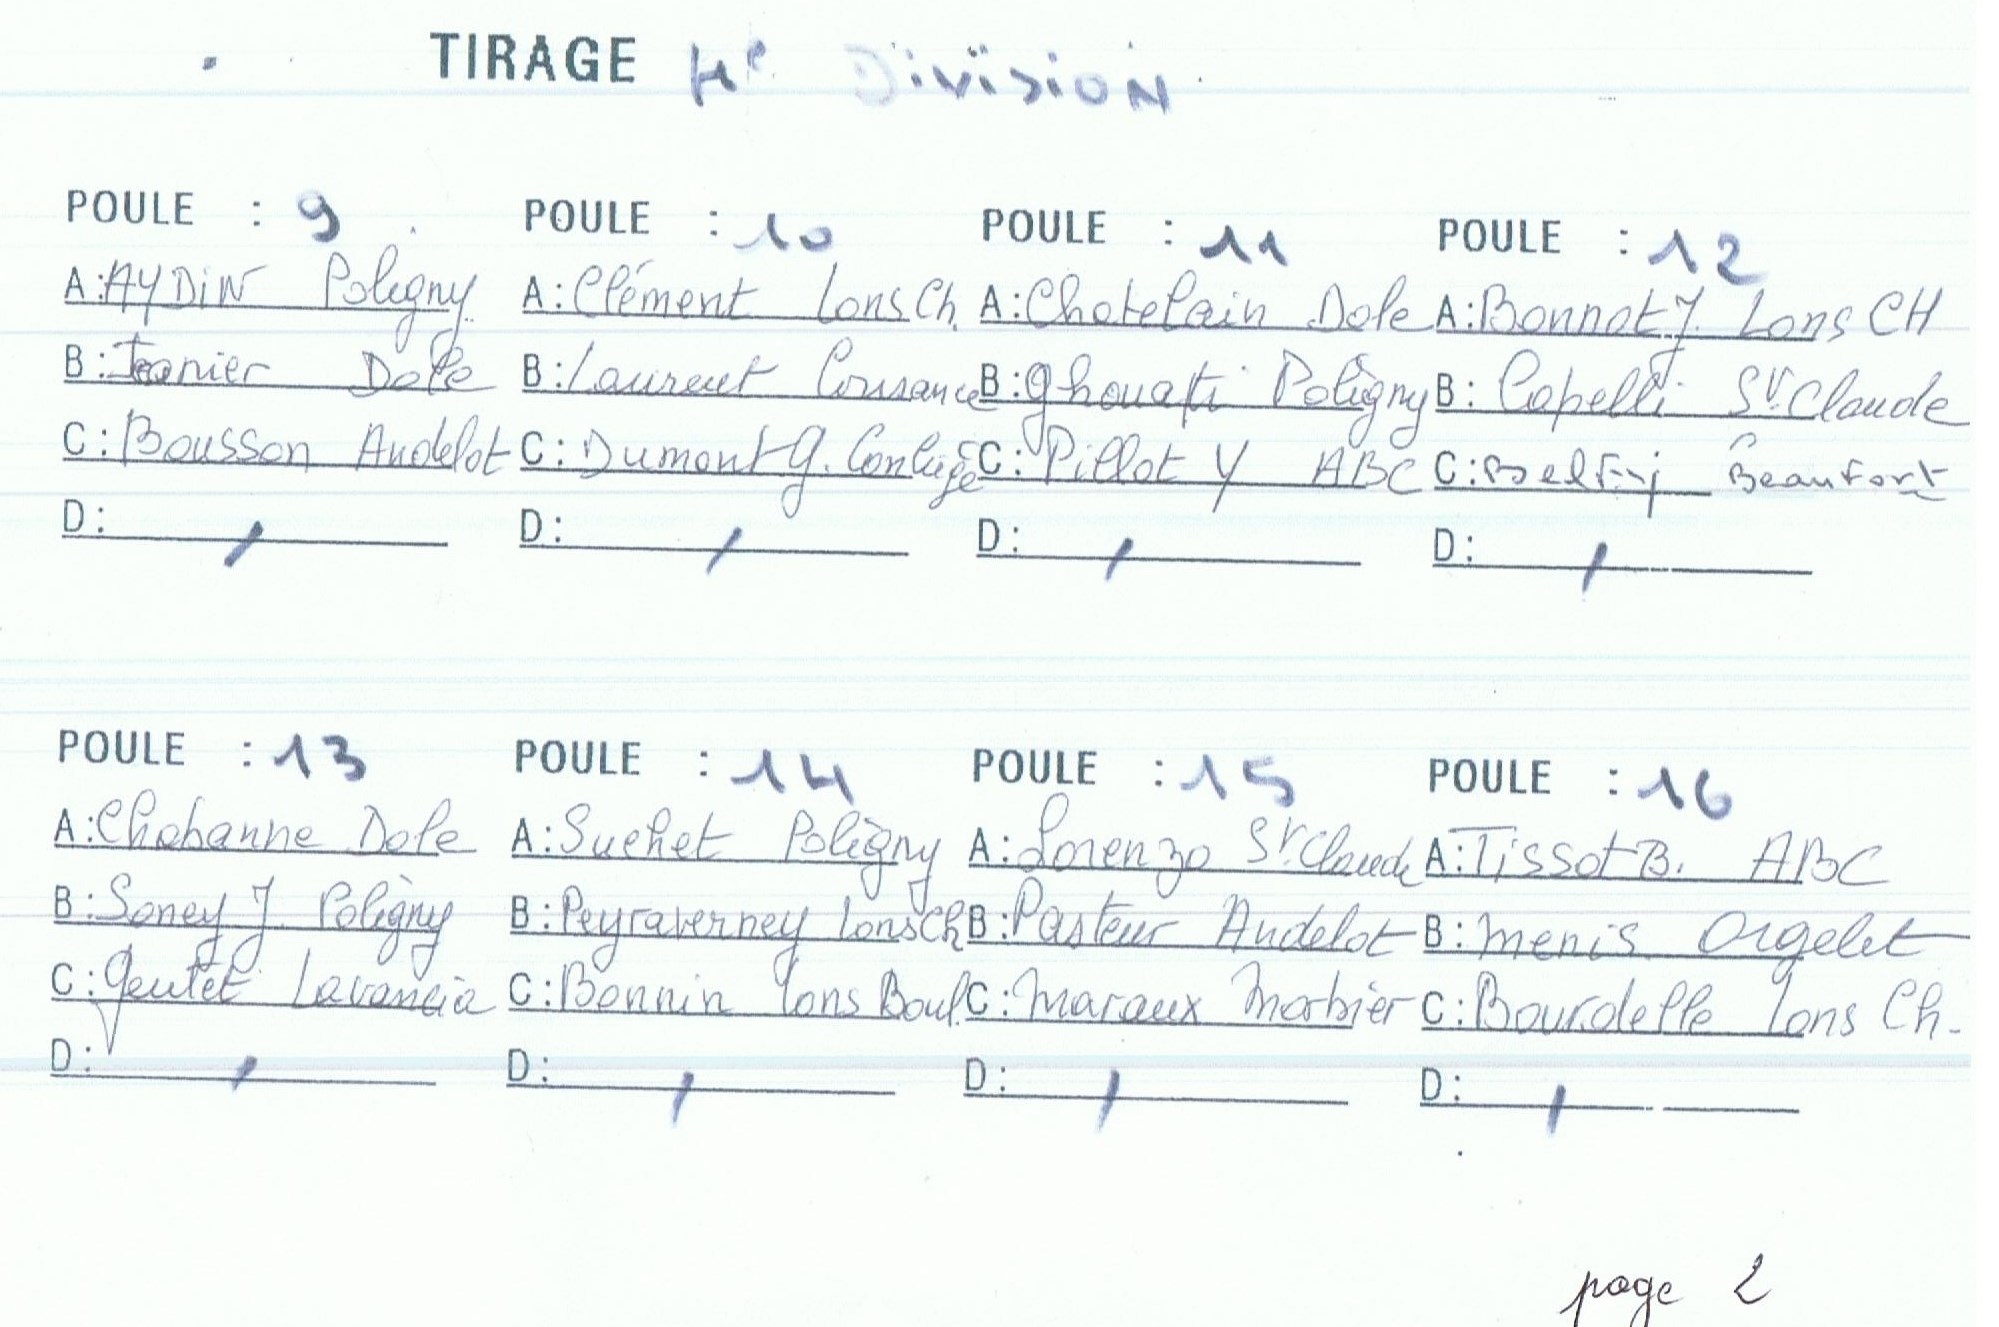 TIRAGE 4e Division
POULE : 9 POULE : 10 POULE : 11 POULE : 12
A: AYDIN Poligny A: Clément Lons Ch. A: Chatelain Dole A: Bonnot J. Lons CH
B: Dole B: Laurent Cousance B: Ghouati Poligny B: Capelli St. Claude
C: Bousson Andelot C: Dumont G. Conliège C: Pillot Y ABC C: Beaufort
D: / D: / D: / D: /
POULE : 13 POULE : 14 POULE : 15 POULE : 16
A: Chabanne Dole A: Suchet Poligny A: Lorenzo St. Claude A: Tissot B. ABC
B: Soney J. Poligny B: Peyraverney Lons Ch B: Pasteur Andelot B: Menis Orgelet
C: Gentet Lavancia C: Bonnin Lons Boul. C: Maraux Morbier C: Bourdelle Lons Ch.
D: / D: / D: / D: /
page 2